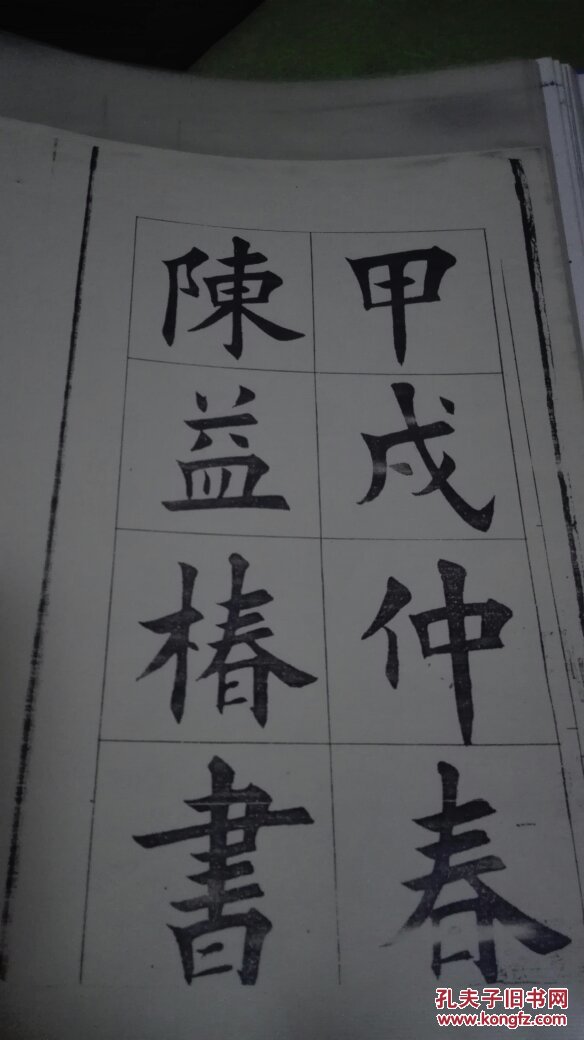 甲戌仲春
陳益椿書
孔夫子旧书网
www.kongfz.com